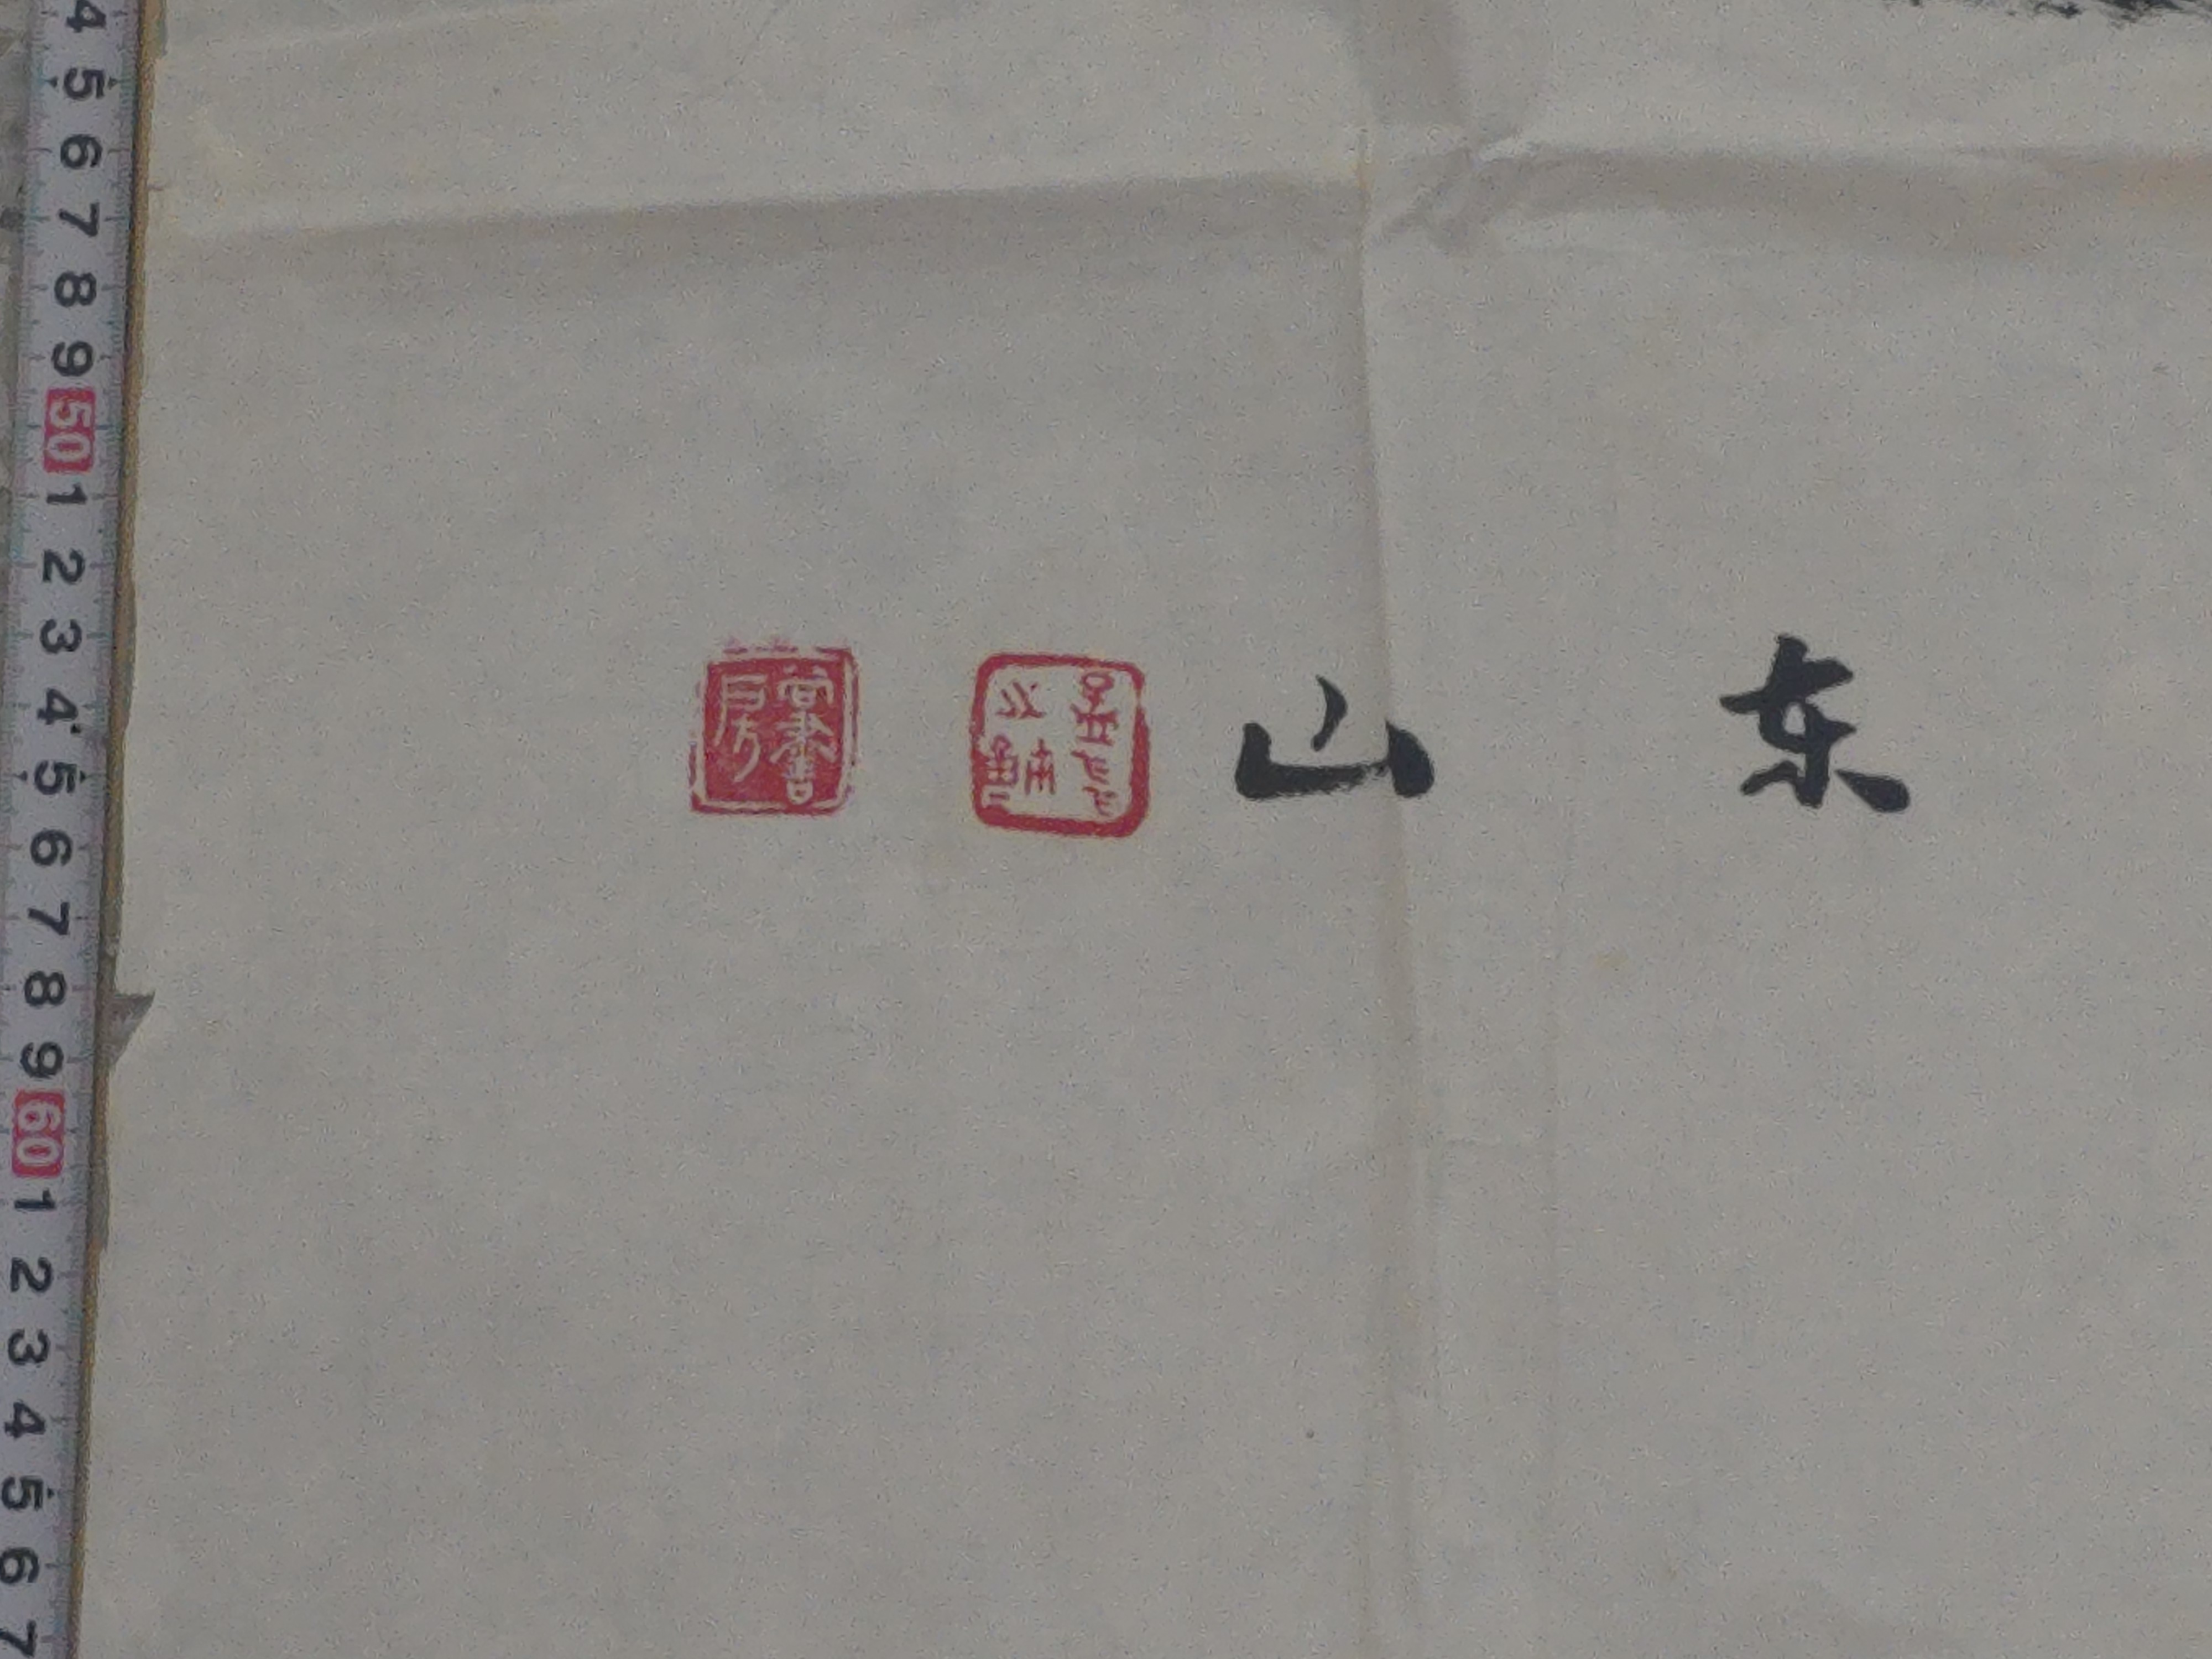 东山
書房
4 5 6 7 8 9 50 1 2 3 4 5 6 7 8 9 60 1 2 3 4 5 6 7